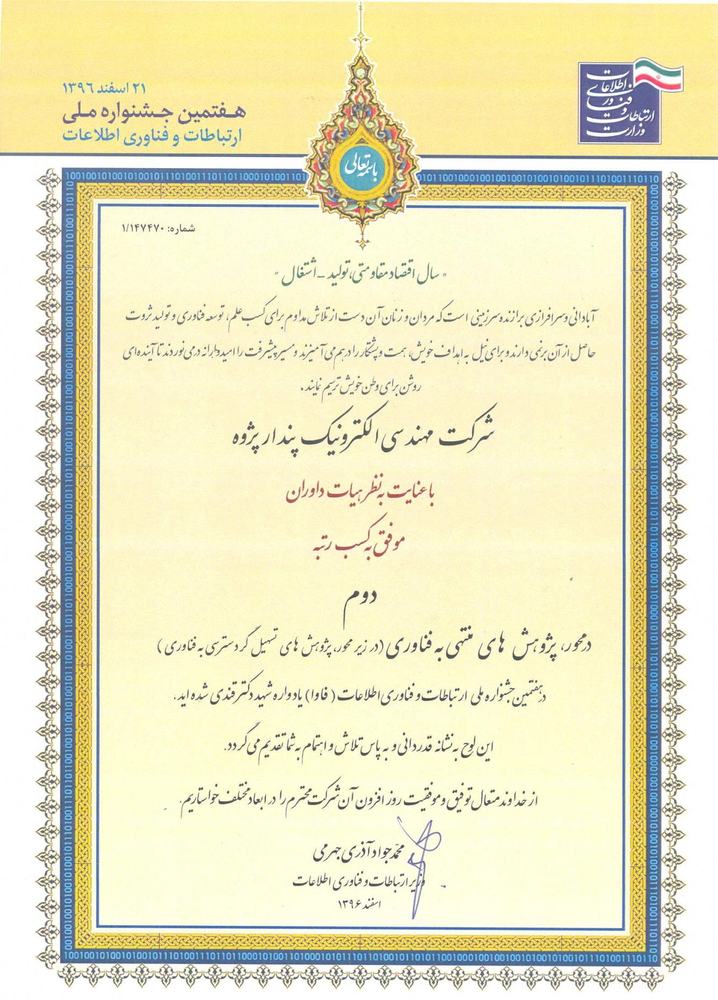 ۲۱ اسفند ۱۳۹۶
هـفتمین جـشنواره ملـی
ارتباطات و فناوری اطلاعات
وزارت
ارتباطات و
فناوری
اطلاعات
باسمه تعالی
شماره: ۱/۱۴۷۴۷۰
" سال اقتصاد مقاومتی، تولید - اشتغال "
آبادانی و سرافرازی برازنده سرزمینی است که مردان و زنان آن دست از تلاش مداوم برای کسب علم، توسعه فناوری و تولید ثروت
حاصل از آن برنمی دارند و برای نیل به اهداف خویش، همت و پشتکار را درهم می آمیزند و مسیر پیشرفت را امیدوارانه درمی نوردند تا آینده ای
روشن برای وطن خویش ترسیم نمایند.
شرکت مهندسی الکترونیک پندار پژوه
با عنایت به نظر هیات داوران
موفق به کسب رتبه
دوم
درمحور، پژوهش های منتهی به فناوری (در زیر محور، پژوهش های تسهیل گر دسترسی به فناوری)
در هفتمین جشنواره ملی ارتباطات و فناوری اطلاعات (فاوا) یادواره شهید دکتر قندی شده اید.
این لوح به نشانه قدردانی و به پاس تلاش و اهتمام به شما تقدیم می گردد.
از خداوند متعال توفیق و موفقیت روز افزون آن شرکت محترم را در ابعاد مختلف خواستاریم.
محمد جواد آذری جهرمی
وزیر ارتباطات و فناوری اطلاعات
اسفند ۱۳۹۶